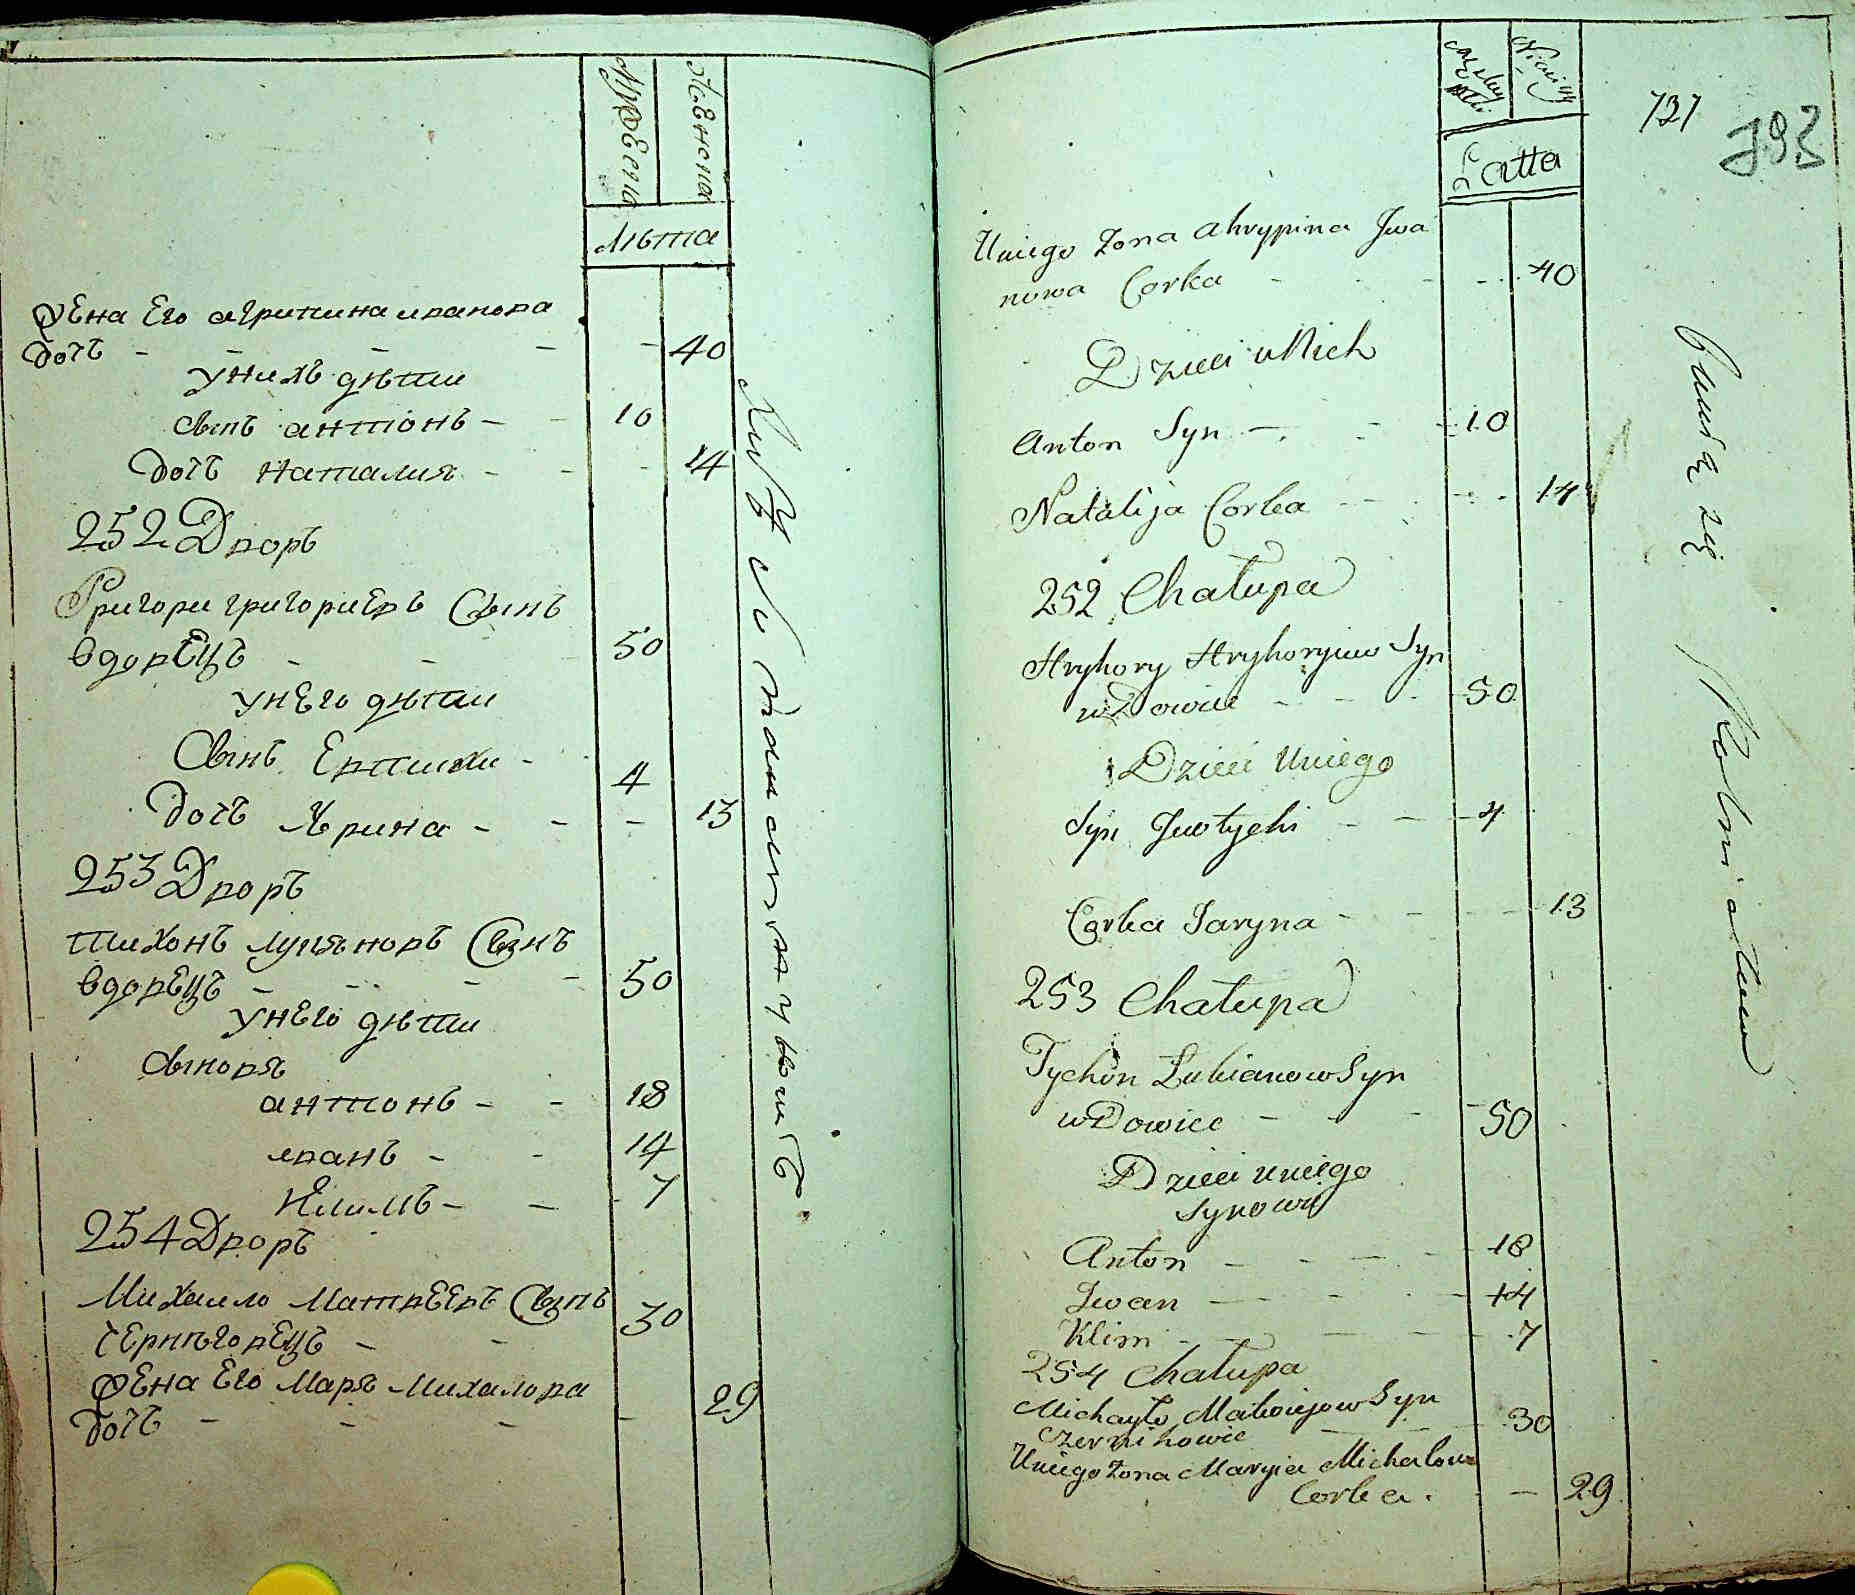 Мужеска
Женска
Лѣта
Жена Его агрипина иванова
дочь - - - - 40
унихъ дѣти
Сынъ антонъ - - 10
дочь Наталия - - - 14
252 Дворъ
Григори григориевъ Сынъ
вдовецъ - - 50
унЕго дѣти
Сынъ Евтихи - 4
дочь Ярина - - - 13
253 Дворъ
тихонъ лукяновъ Сынъ
вдовецъ - - - - 50
унЕго дѣти
Сыновя
антонъ - - 18
иванъ - - 14
Климъ - - 7
254 Дворъ
Михаило Матвеевъ Сынъ
чернѣговецъ - - 30
Жена Его Маря Михалова
дочь - - - - 29
737
793
Latta
Uniego Zona Ahrypina Jwa
nowa Corka - - - - 40
Dzieci uNich
Anton Syn - - - 10
Natalija Corka - - - 14
252 Chałupa
Hryhory Hryhoryiow Syn
wDowiec - - - 50
Dzieci Uniego
Syn Jwtychi - - 4
Corka Jaryna - - - 13
253 Chałupa
Tychon Łukianow Syn
wDowiec - - - 50
Dzieci uniego
Synowi
Anton - - - 18
Jwan - - - 14
Klim - - - 7
254 Chałupa
Michayło Matwiejow Syn
Czernihowiec - - - 30
Uniego Zona Maryia Michalowa
Corka. - - 29